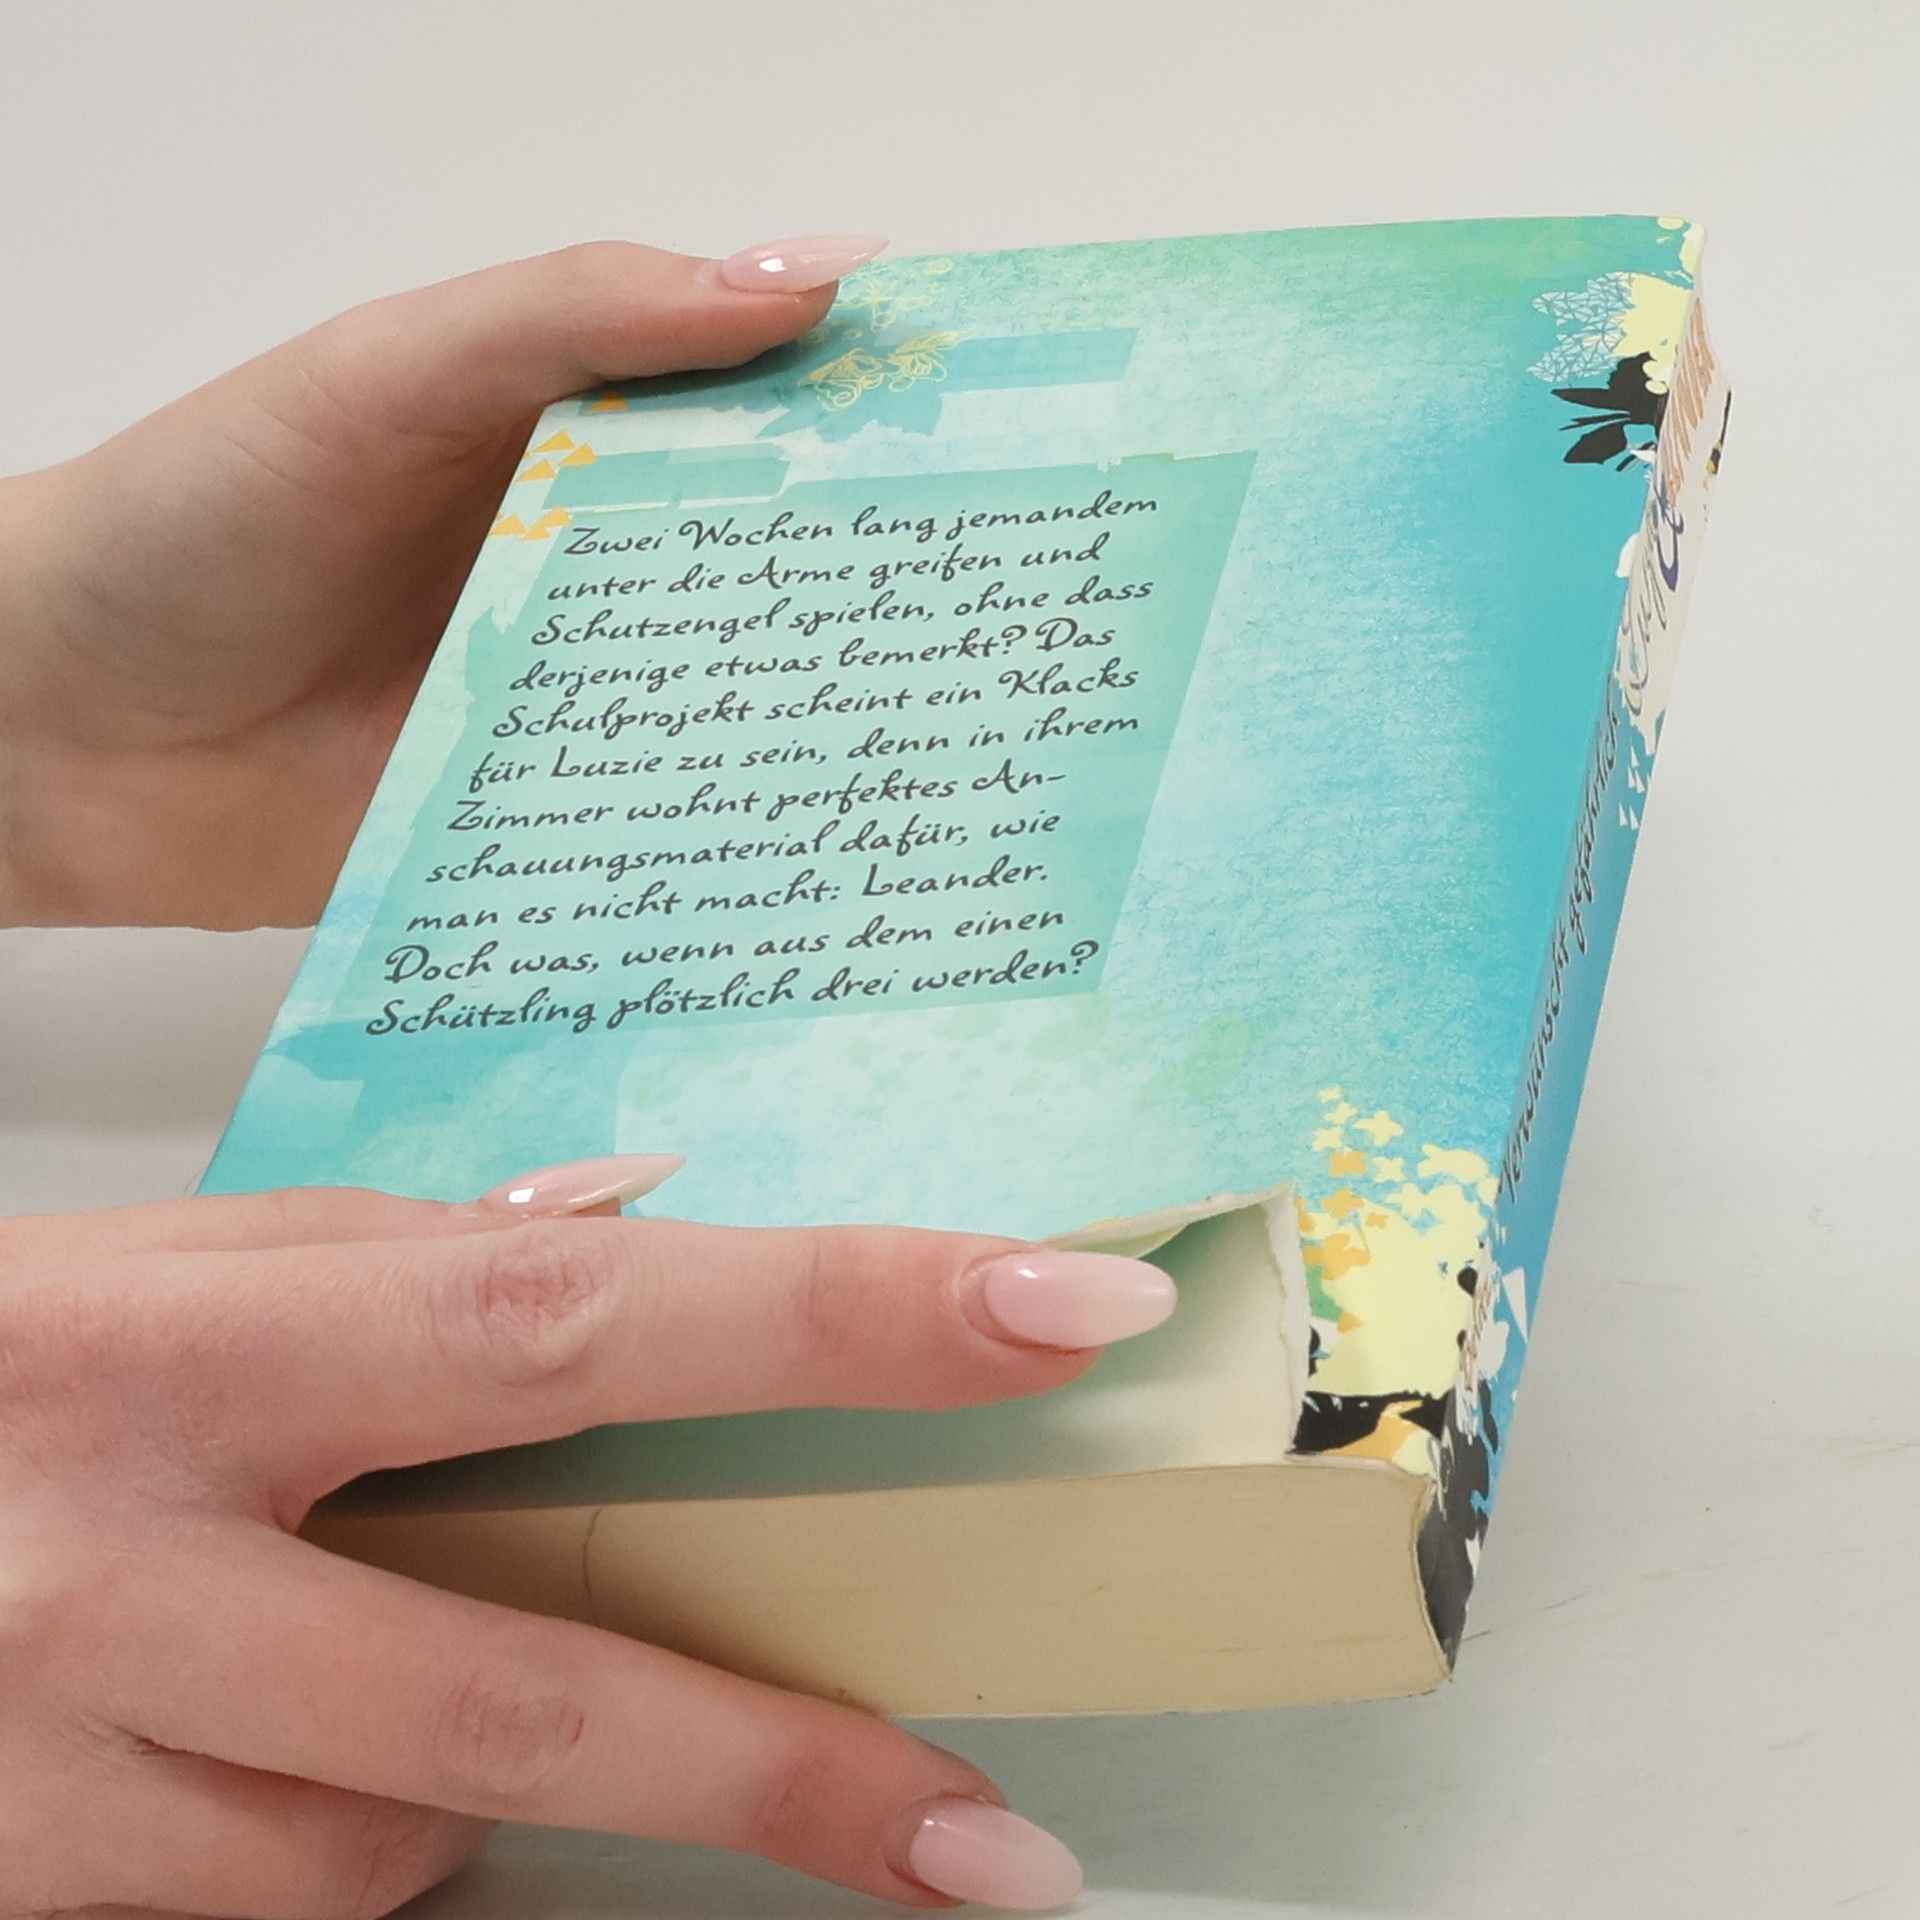 Zwei Wochen lang jemandem
unter die Arme greifen und
Schutzengel spielen, ohne dass
derjenige etwas bemerkt? Das
Schulprojekt scheint ein Klacks
für Luzie zu sein, denn in ihrem
Zimmer wohnt perfektes An-
schauungsmaterial dafür, wie
man es nicht macht: Leander.
Doch was, wenn aus dem einen
Schützling plötzlich drei werden?
Verwünscht gefährlich